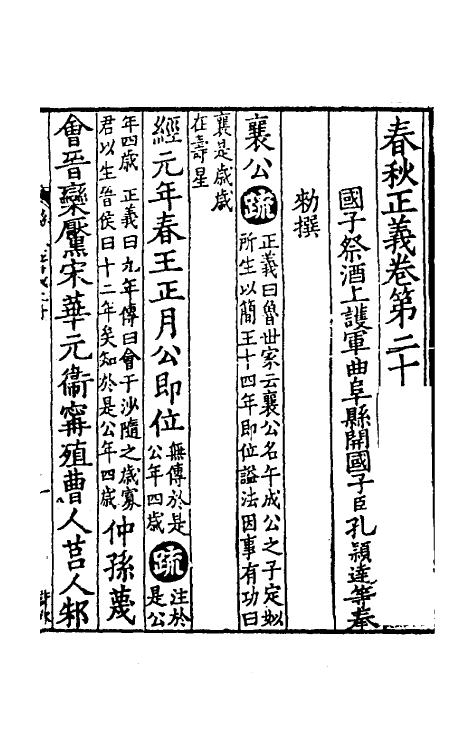 春秋正義卷第二十
國子祭酒上護軍曲阜縣開國子臣孔穎達等奉
勑撰
襄公疏正義曰魯世家云襄公名午成公之子定姒
所生以簡王十四年即位謚法因事有功曰
襄是歲歲
在壽星
經元年春王正月公即位無傳於是
公年四歲疏注於
是公
年四歲 正義曰九年傳曰會于沙隨之歲寡
君以生晉侯曰十二年矣知於是公年四歲仲孫蔑
會晉欒黶宋華元衞甯殖曹人莒人邾